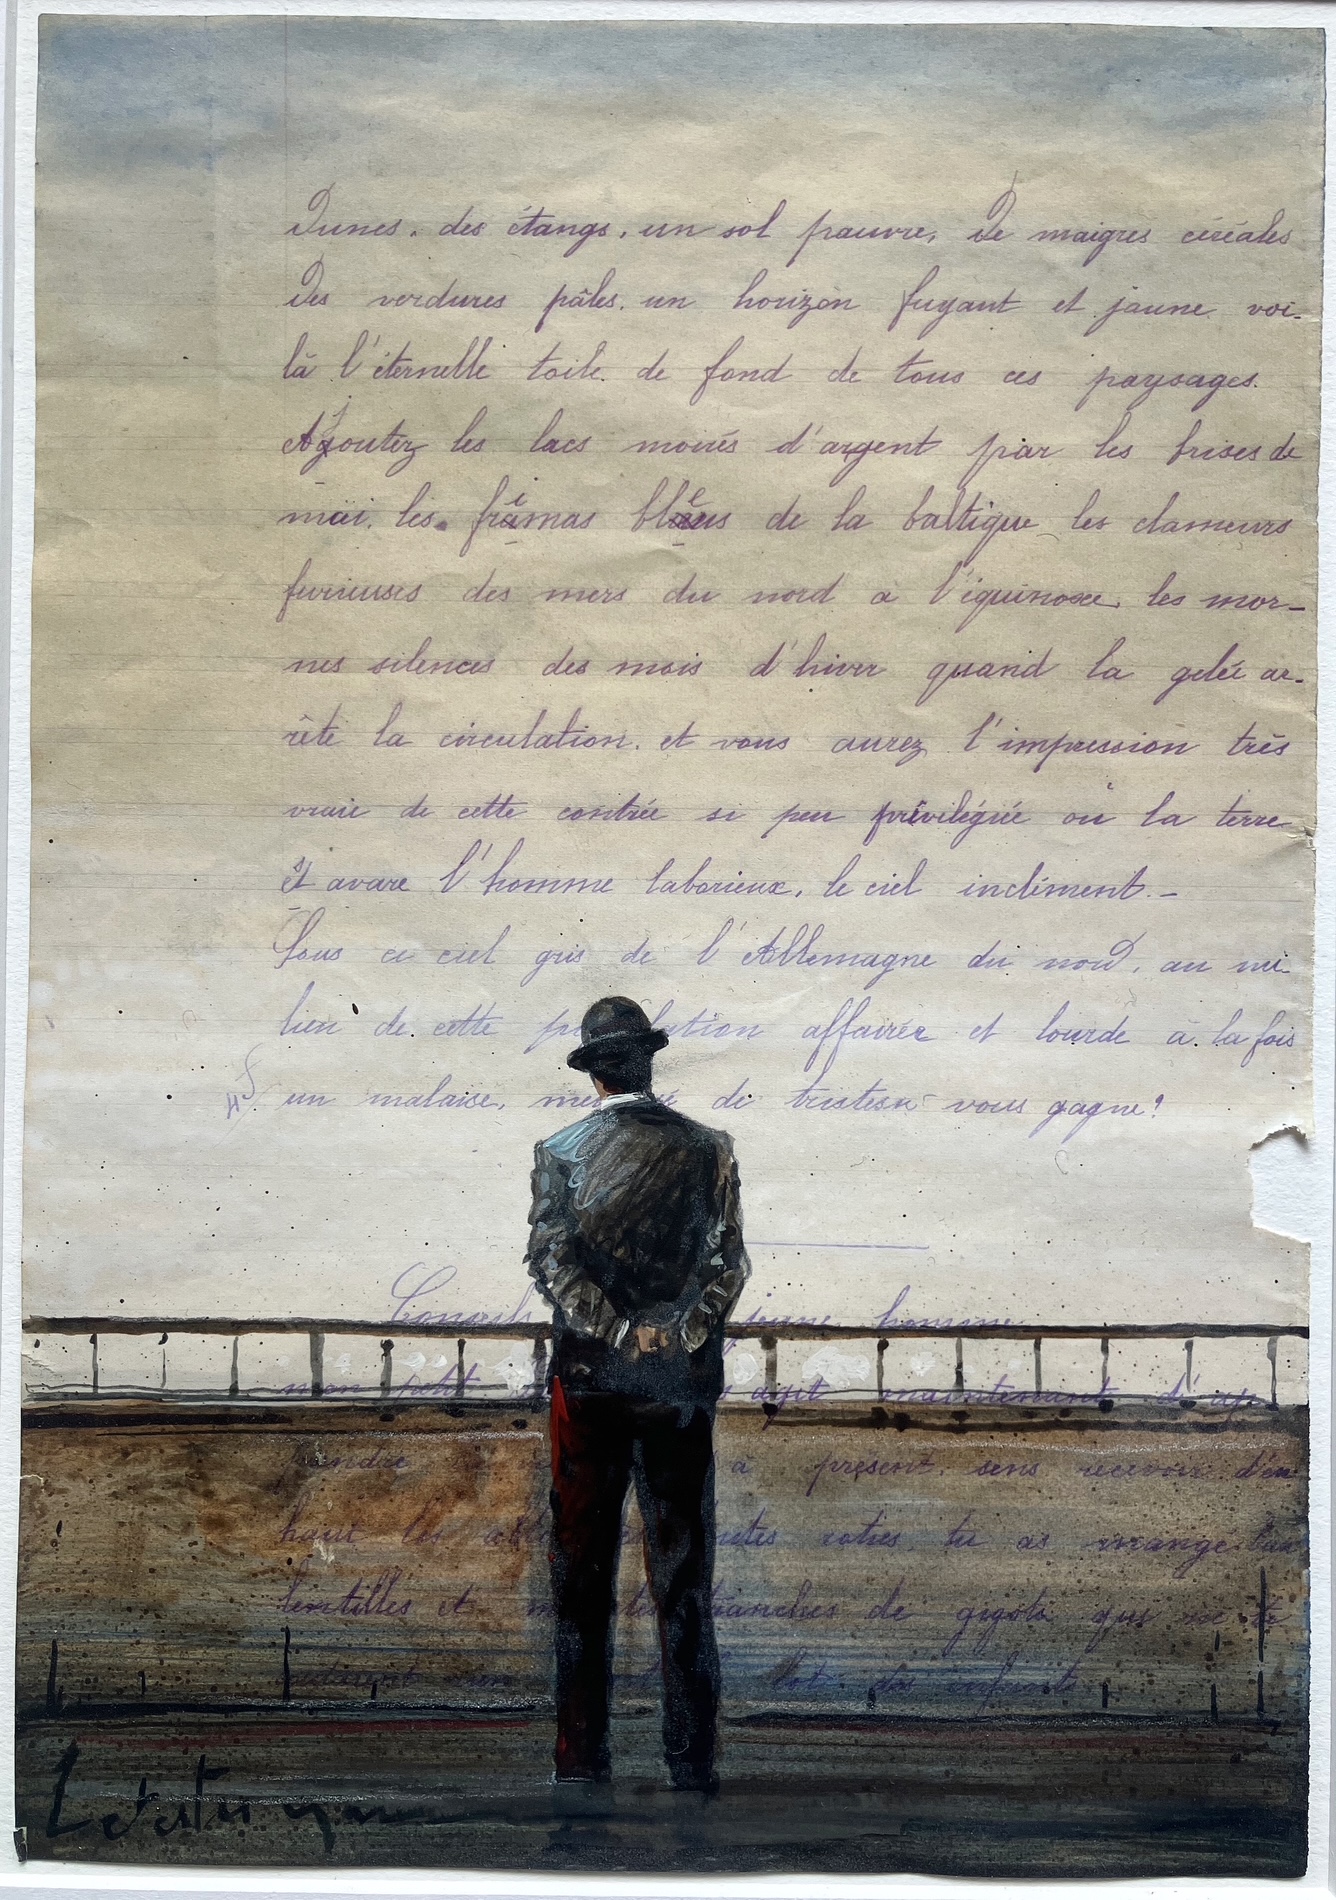 Dunes, des étangs, un sol pauvre, De maigres céréales
Des verdures pâles, un horizon fuyant et jaune voi-
là l'éternelle toile de fond de tous ces paysages.
Ajoutez les lacs moirés d'argent par les brises de
mai, les frimas bleus de la baltique, les clameurs
furieuses des mers du nord à l'équinoxe, les mor-
nes silences des mois d'hiver quand la gelée ar-
rête la circulation, et vous aurez l'impression très
vraie de cette contrée si peu privilégiée où la terre
est avare l'homme laborieux, le ciel inclément.-
Sous ce ciel gris de l'Allemagne du nord, au mi-
lieu de cette lation affairée et lourde à la fois
un malaise, de tristesse vous gagne!
Conseils jeune homme
mon petit agit maintenant d'ap-
prendre à présent, sans recevoir d'en
haut les rôties, tu as mangé
lentilles et tranches de gigots qui ne te
lot des enfants